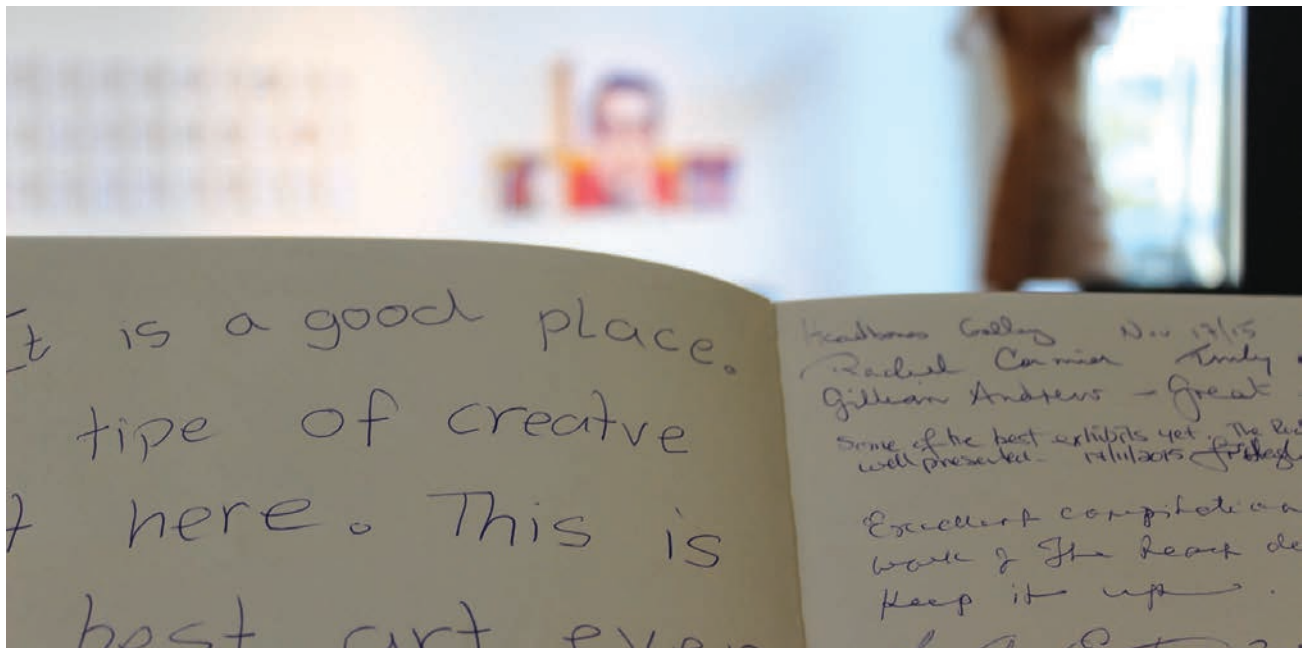 It is a good place.
tipe of creatve
t here. This is
best art even
Gallery Nov 17/15
Rachel Cormier Emily
Gillian Andrews - Great
Some of the best exhibits yet. The
well presented. 14/11/2015
Excellent compilation
work of The Reach
Keep it up.